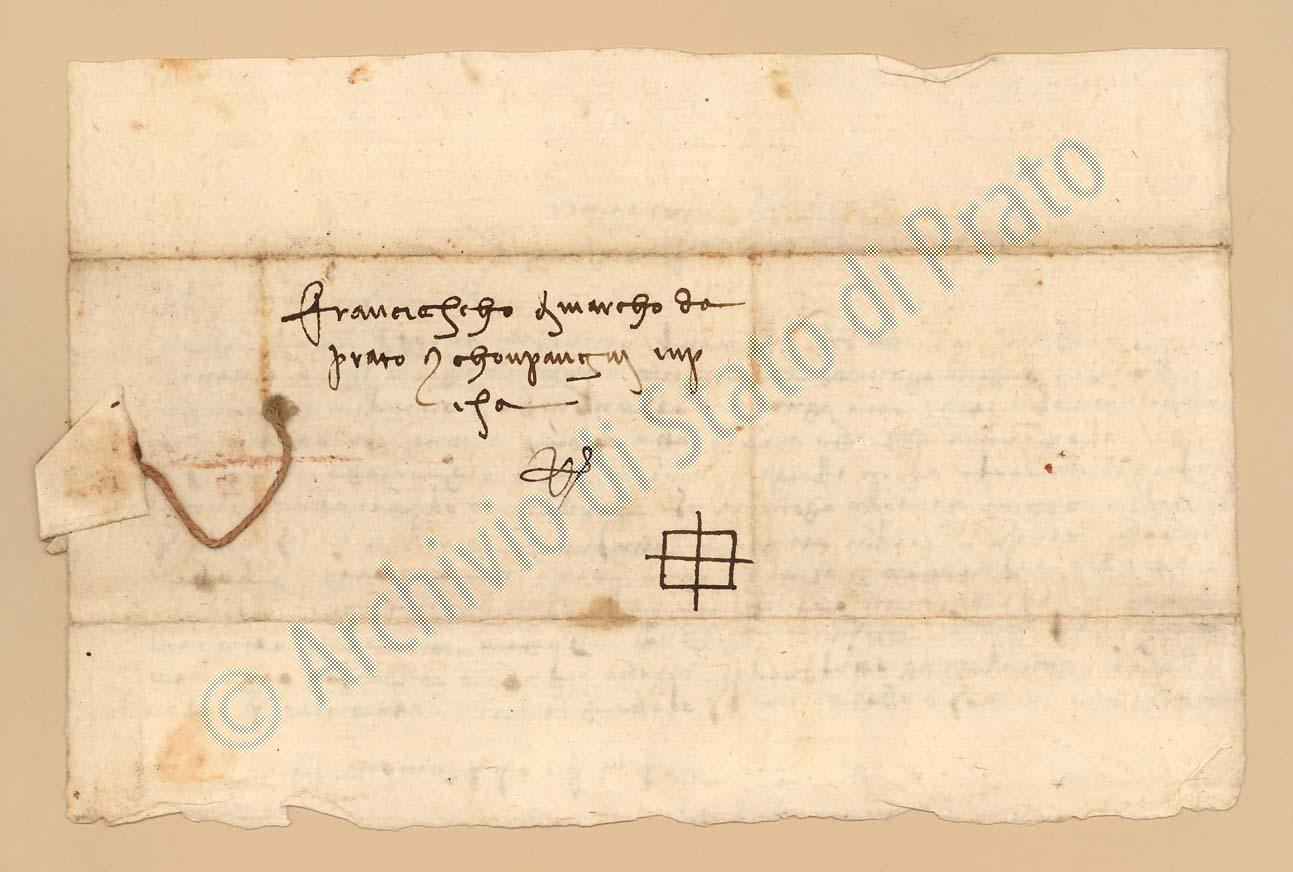 Francischcho di marcho da
prato e chonpangni inp
isa
© Archivio di Stato di Prato